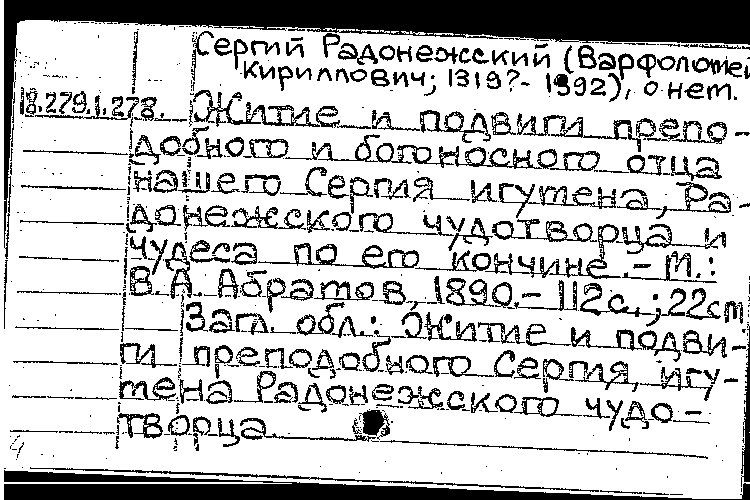 Сергий Радонежский (Варфоломей
Кириллович; 1319?- 1392), о нем.
18.279.1.278. Житие и подвиги препо-
добного и богоносного отца
нашего Сергия игумена, Ра-
донежского чудотворца и
чудеса по его кончине.- М.:
В.А. Абрамов, 1890.- 112с.,;22cm
Загл. обл.: Житие и подви-
ги преподобного Сергия, игу-
мена Радонежского чудо-
творца.
4